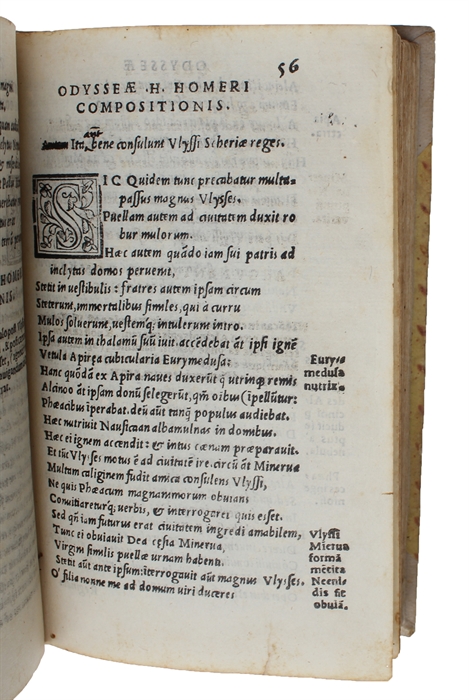 56
ODYSSEÆ H. HOMERI
COMPOSITIONIS.
aūt
Ita, bene consulunt Vlyssi Scheriæ reges.
SIC Quidem tunc precabatur multa-
passus magnus Vlysses.
Puellam autem ad ciuitatem duxit ro
bur mulorum.
Hæc autem quādo iam sui patris ad
inclytas domos peruenit,
Stetit in uestibulis: fratres autem ipsam circum
Steterunt, immortalibus similes, qui à curru
Mulos soluerunt, uestemq; intulerunt intro.
Ipsa autem in thalamū suū iuit. accēdebat āt ipsi ignē
Vetula Apiręa cubicularia Eurymedusa:
Eury-
medusa
nutrix.
Hanc quōdā ex Apira naues duxerūt q̄ utrinq; remis
Alcinoo āt ipsam donū selegerūt, qm̄ oībus (īpellūtur:
Phæacibus iperabat. deū aūt tanq̄ populus audiebat.
Hæc nutriuit Nauficaan albamulnas in domibus.
Hæc ei ignem accendit: & intus cœnam præparauit.
Et tūc Vlysses motus ē ad ciuitatē ire. circū āt Minerua
Multam caliginem fudit amica consulens Vlyssi,
Ne quis Phæacum magnammorum obuians
Conuitiaretur'q; uerbis, & interrogaret quis esset.
Sed qn̄ iam futurus erat ciuitatem ingredi amabilem,
Tunc ei obuiauit Dea cesia Minerua,
Virgini similis puellæ urnam habenti.
Stetit aūt ante ipsum: iterrogauit aūt magnus Vlysses.
O' filia nonne me ad domum uiri duceres
Vlyssi
formā
mētita
dis fit
obuiā.